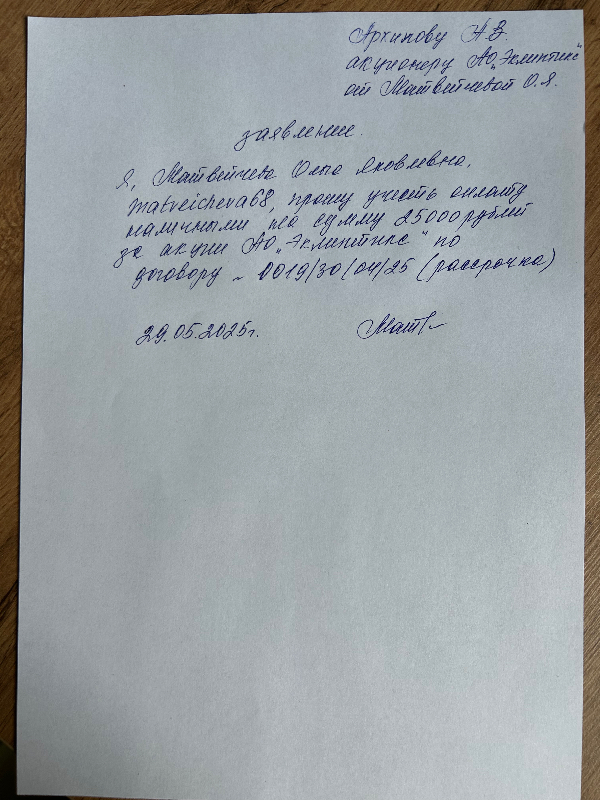 Архипову Н.В.
акционеру АО „Эклиптикс"
от Матвейчевой О.Я.
заявление.
Я, Матвейчева Ольга Яковлевна,
matveicheva68, прошу учесть оплату
наличными на сумму 25000 рублей
за акции АО „Эклиптикс" по
договору ~ 0019/30/04/25 (рассрочка)
29.05.2025г.